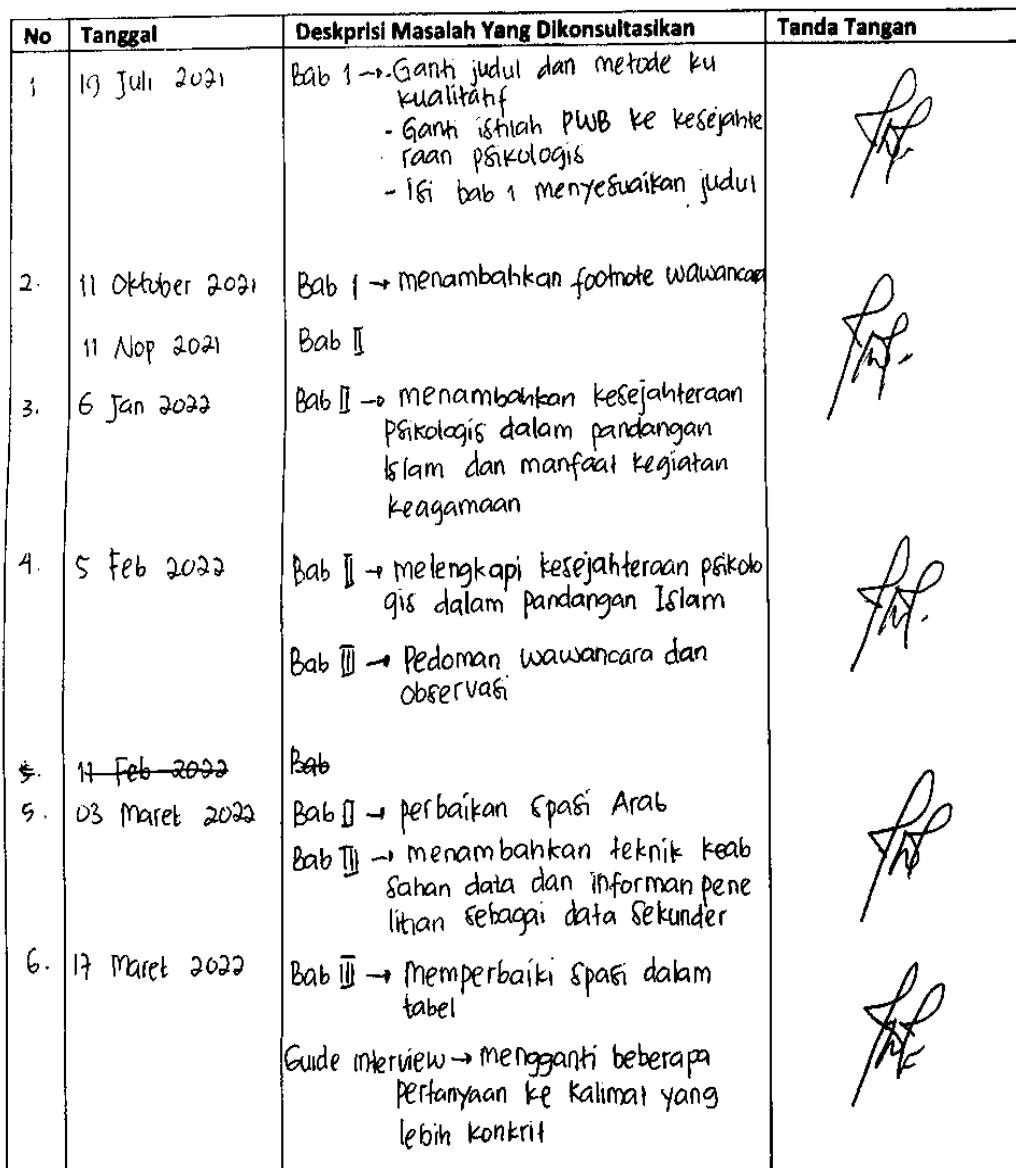 No Tanggal Deskprisi Masalah Yang Dikonsultasikan Tanda Tangan
1 19 Juli 2021 Bab 1 →.Ganti judul dan metode ku
kualitatif
- Ganti istilah PWB ke kesejahte
raan psikologis
- isi bab 1 menyesuaikan judul
2. 11 Oktober 2021 Bab 1 → menambahkan footnote wawancara
11 Nop 2021 Bab II
3. 6 Jan 2022 Bab II → menambahkan kesejahteraan
psikologis dalam pandangan
Islam dan manfaat kegiatan
keagamaan
4. 5 Feb 2022 Bab II → melengkapi kesejahteraan psikolo
gis dalam pandangan Islam
Bab III → Pedoman wawancara dan
observasi
5. 11 Feb 2022 Bab
5. 03 Maret 2022 Bab II → perbaikan spasi Arab
Bab III → menambahkan teknik keab
sahan data dan informan pene
litian sebagai data sekunder
6. 17 Maret 2022 Bab III → Memperbaiki spasi dalam
tabel
Guide interview → mengganti beberapa
pertanyaan ke kalimat yang
lebih konkrit